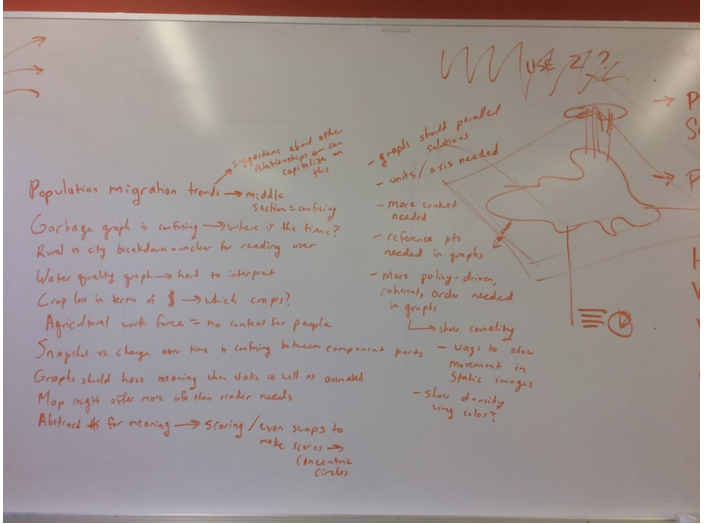 USE
suggestions about other
relationships can
capitalize on
this
Population migration trends → middle
section = confusing
Garbage graph is confusing → where is the time?
Rural vs city breakdown unclear for reading user
Water quality graph → hard to interpret
Crop loss in terms of $ → which crops?
Agricultural work force = no context for people
Snapshot vs. change over time is confusing between component parts
Graphs should have meaning when static as well as animated
Map might offer more info than reader needs
Abstract #s for meaning → scoring / even swaps to
make scores →
concentric
circles
- graphs should parallel
solutions
- units / axis needed
- more context
needed
- reference pts
needed in graphs
- More policy-driven,
coherent, order needed
in graphs
→ show causality
- ways to show
movement in
static images
- show density
using color?
→ P
S
→ P
H
V